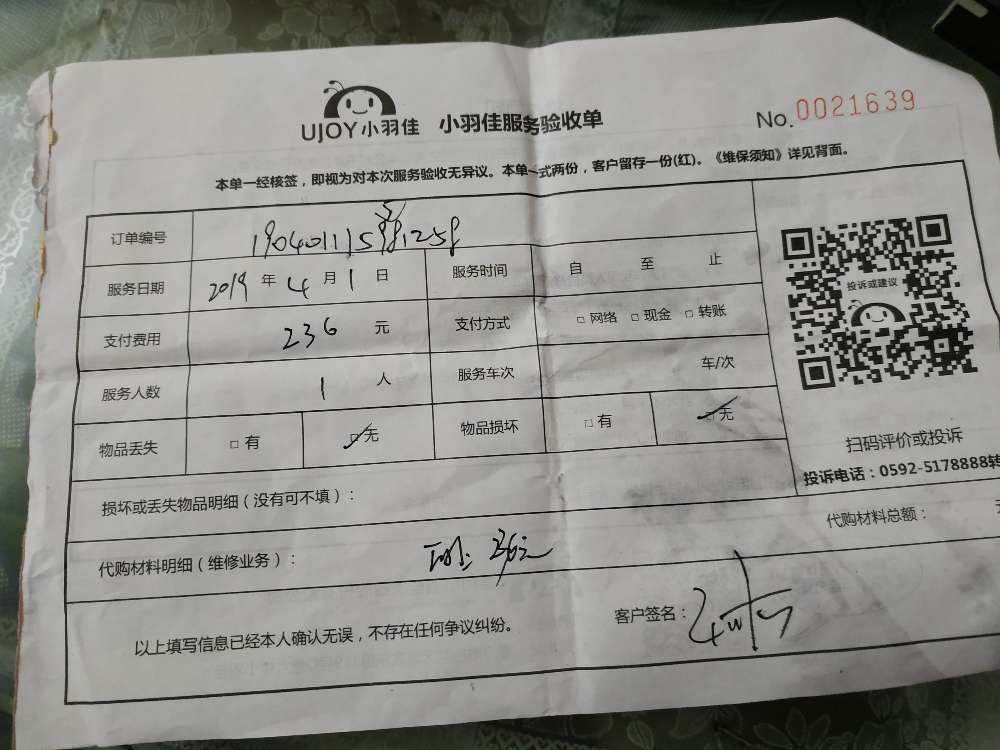 UJOY小羽佳 小羽佳服务验收单 No.0021639
本单一经核签，即视为对本次服务验收无异议。本单一式两份，客户留存一份(红)。《维保须知》详见背面。
订单编号
服务日期 2019 年 4 月 1 日 服务时间 自 至 止
支付费用 236 元 支付方式 □ 网络 □ 现金 □ 转账
服务人数 1 人 服务车次 车/次
物品丢失 □ 有 □ 无 物品损坏 □ 有 □ 无
投诉或建议
扫码评价或投诉
投诉电话：0592-5178888转
损坏或丢失物品明细（没有可不填）：
代购材料明细（维修业务）： 代购材料总额：
以上填写信息已经本人确认无误，不存在任何争议纠纷。 客户签名：